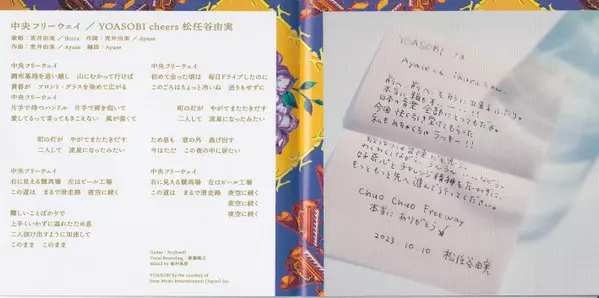 中央フリーウェイ／YOASOBI cheers 松任谷由実
歌唱：荒井由実／ikura 作詞：荒井由実／Ayase
作曲：荒井由実／Ayase 編曲：Ayase
中央フリーウェイ
調布基地を追い越し 山にむかって行けば
黄昏が フロント・グラスを染めて広がる
中央フリーウェイ
片手で持つハンドル 片手で肩を抱いて
愛してるって言ってもきこえない 風が強くて
町の灯が やがてまたたきだす
二人して 流星になったみたい
中央フリーウェイ
右に見える競馬場 左はビール工場
この道は まるで滑走路 夜空に続く
難しいことばかりで
上手くいかずに流れたため息
二人抜け出すように加速して
このまま このまま
中央フリーウェイ
初めて会った頃は 毎日ドライブしたのに
このごろはちょっと冷いね 送りもせずに
町の灯が やがてまたたきだす
二人して 流星になったみたい
ため息も 窓の外 逃げ出す
今はただ この夜の中に居たい
中央フリーウェイ
右に見える競馬場 左はビール工場
この道は まるで滑走路 夜空に続く
夜空に続く
夜空に続く
YOASOBI by the courtesy of
Sony Music Entertainment (Japan) Inc.
YOASOBI の
Ayaseくん ikuraちゃん
本当に
日本の音楽
今回 快く引き受けてもらった
私もめちゃくちゃラッキー!!
好奇心とチャレンジ精神を
もっともっと先へ進んで行ってください。
Chuo Chuo Freeway
本当にありがとう
2023. 10. 10 松任谷由実